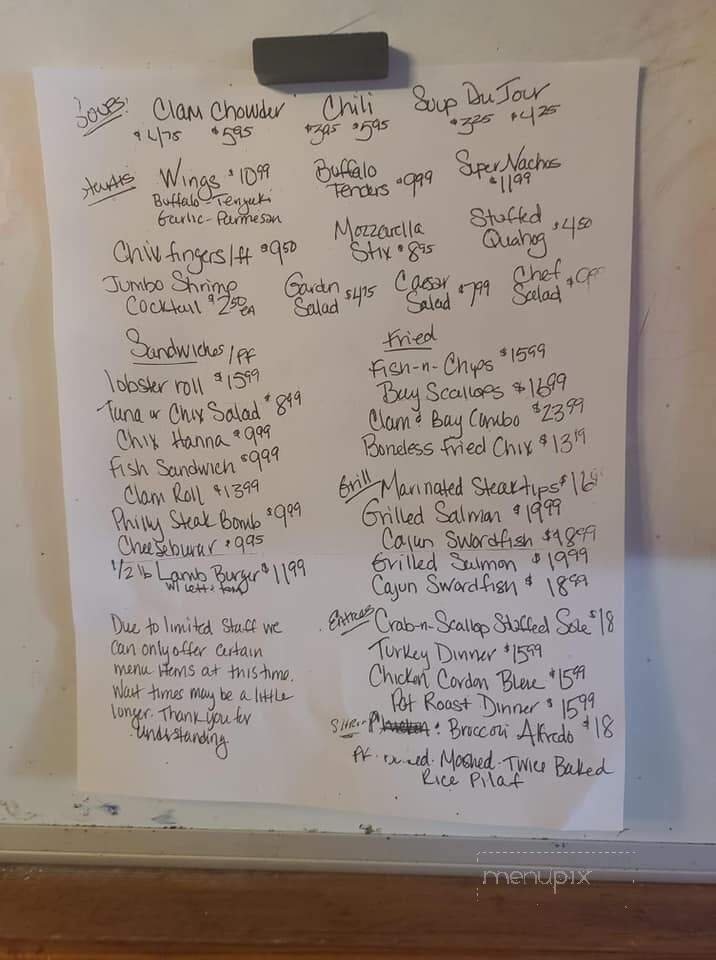 Soups: Clam Chowder Chili Soup Du Jour
$4.75 $5.95 $3.95 $5.95 $3.25 $4.25
Starters Wings $10.99 Buffalo Tenders $9.99 Super Nachos $11.99
Buffalo - Teriyaki
Garlic - Parmesan
Chix fingers/ff $9.50 Mozzarella Stix $8.95 Stuffed Quahog $4.50
Jumbo Shrimp Cocktail $2.50 ea Garden Salad $4.75 Caesar Salad $7.99 Chef Salad
Sandwiches/FF
lobster roll $15.99
Tuna or Chix Salad $8.99
Chix Hanna $9.99
Fish Sandwich $9.99
Clam Roll $13.99
Philly Steak Bomb $9.99
Cheeseburger $9.95
1/2 lb Lamb Burger $11.99
w/ Lett + tom
Due to limited staff we
can only offer certain
menu items at this time.
Wait times may be a little
longer. Thank you for
understanding
Fried
Fish-n-Chips $15.99
Bay Scallops $16.99
Clam & Bay Combo $23.99
Boneless Fried Chix
Grill Marinated Steak tips
Grilled Salmon $19.99
Cajun Swordfish $18.99
Grilled Salmon $19.99
Cajun Swordfish $18.99
Entrees Crab-n-Scallop Stuffed Sole $18
Turkey Dinner $15.99
Chicken Cordon Bleu $15.99
Pot Roast Dinner $15.99
Broccoli Alfredo $18
FF Mashed - Twice Baked
Rice Pilaf
menupix